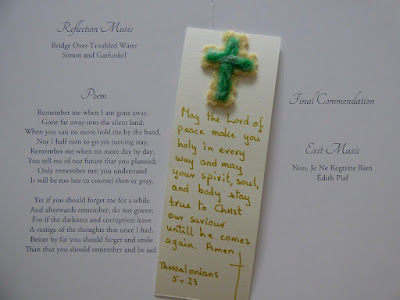 Reflection Music
Bridge Over Troubled Water
Simon and Garfunkel
Poem
Remember me when I am gone away,
Gone far away into the silent land;
When you can no more hold me by the hand,
Nor I half turn to go yet turning stay.
Remember me when no more day by day,
You tell me of our future that you planned;
Only remember me; you understand
It will be too late to counsel then or pray.
Yet if you should forget me for a while
And afterwards remember, do not grieve;
For if the darkness and corruption leave
A vestige of the thoughts that once I had,
Better by far you should forget and smile
Than that you should remember and be sad.
May the Lord of
peace make you
holy in every
way and may
your spirit, soul,
and body stay
true to Christ
our saviour
untill he comes
again. Amen
Thesolonians
5 v. 23
Final Commendation
Exit Music
Non, Je Ne Regrette Rien
Edith Piaf